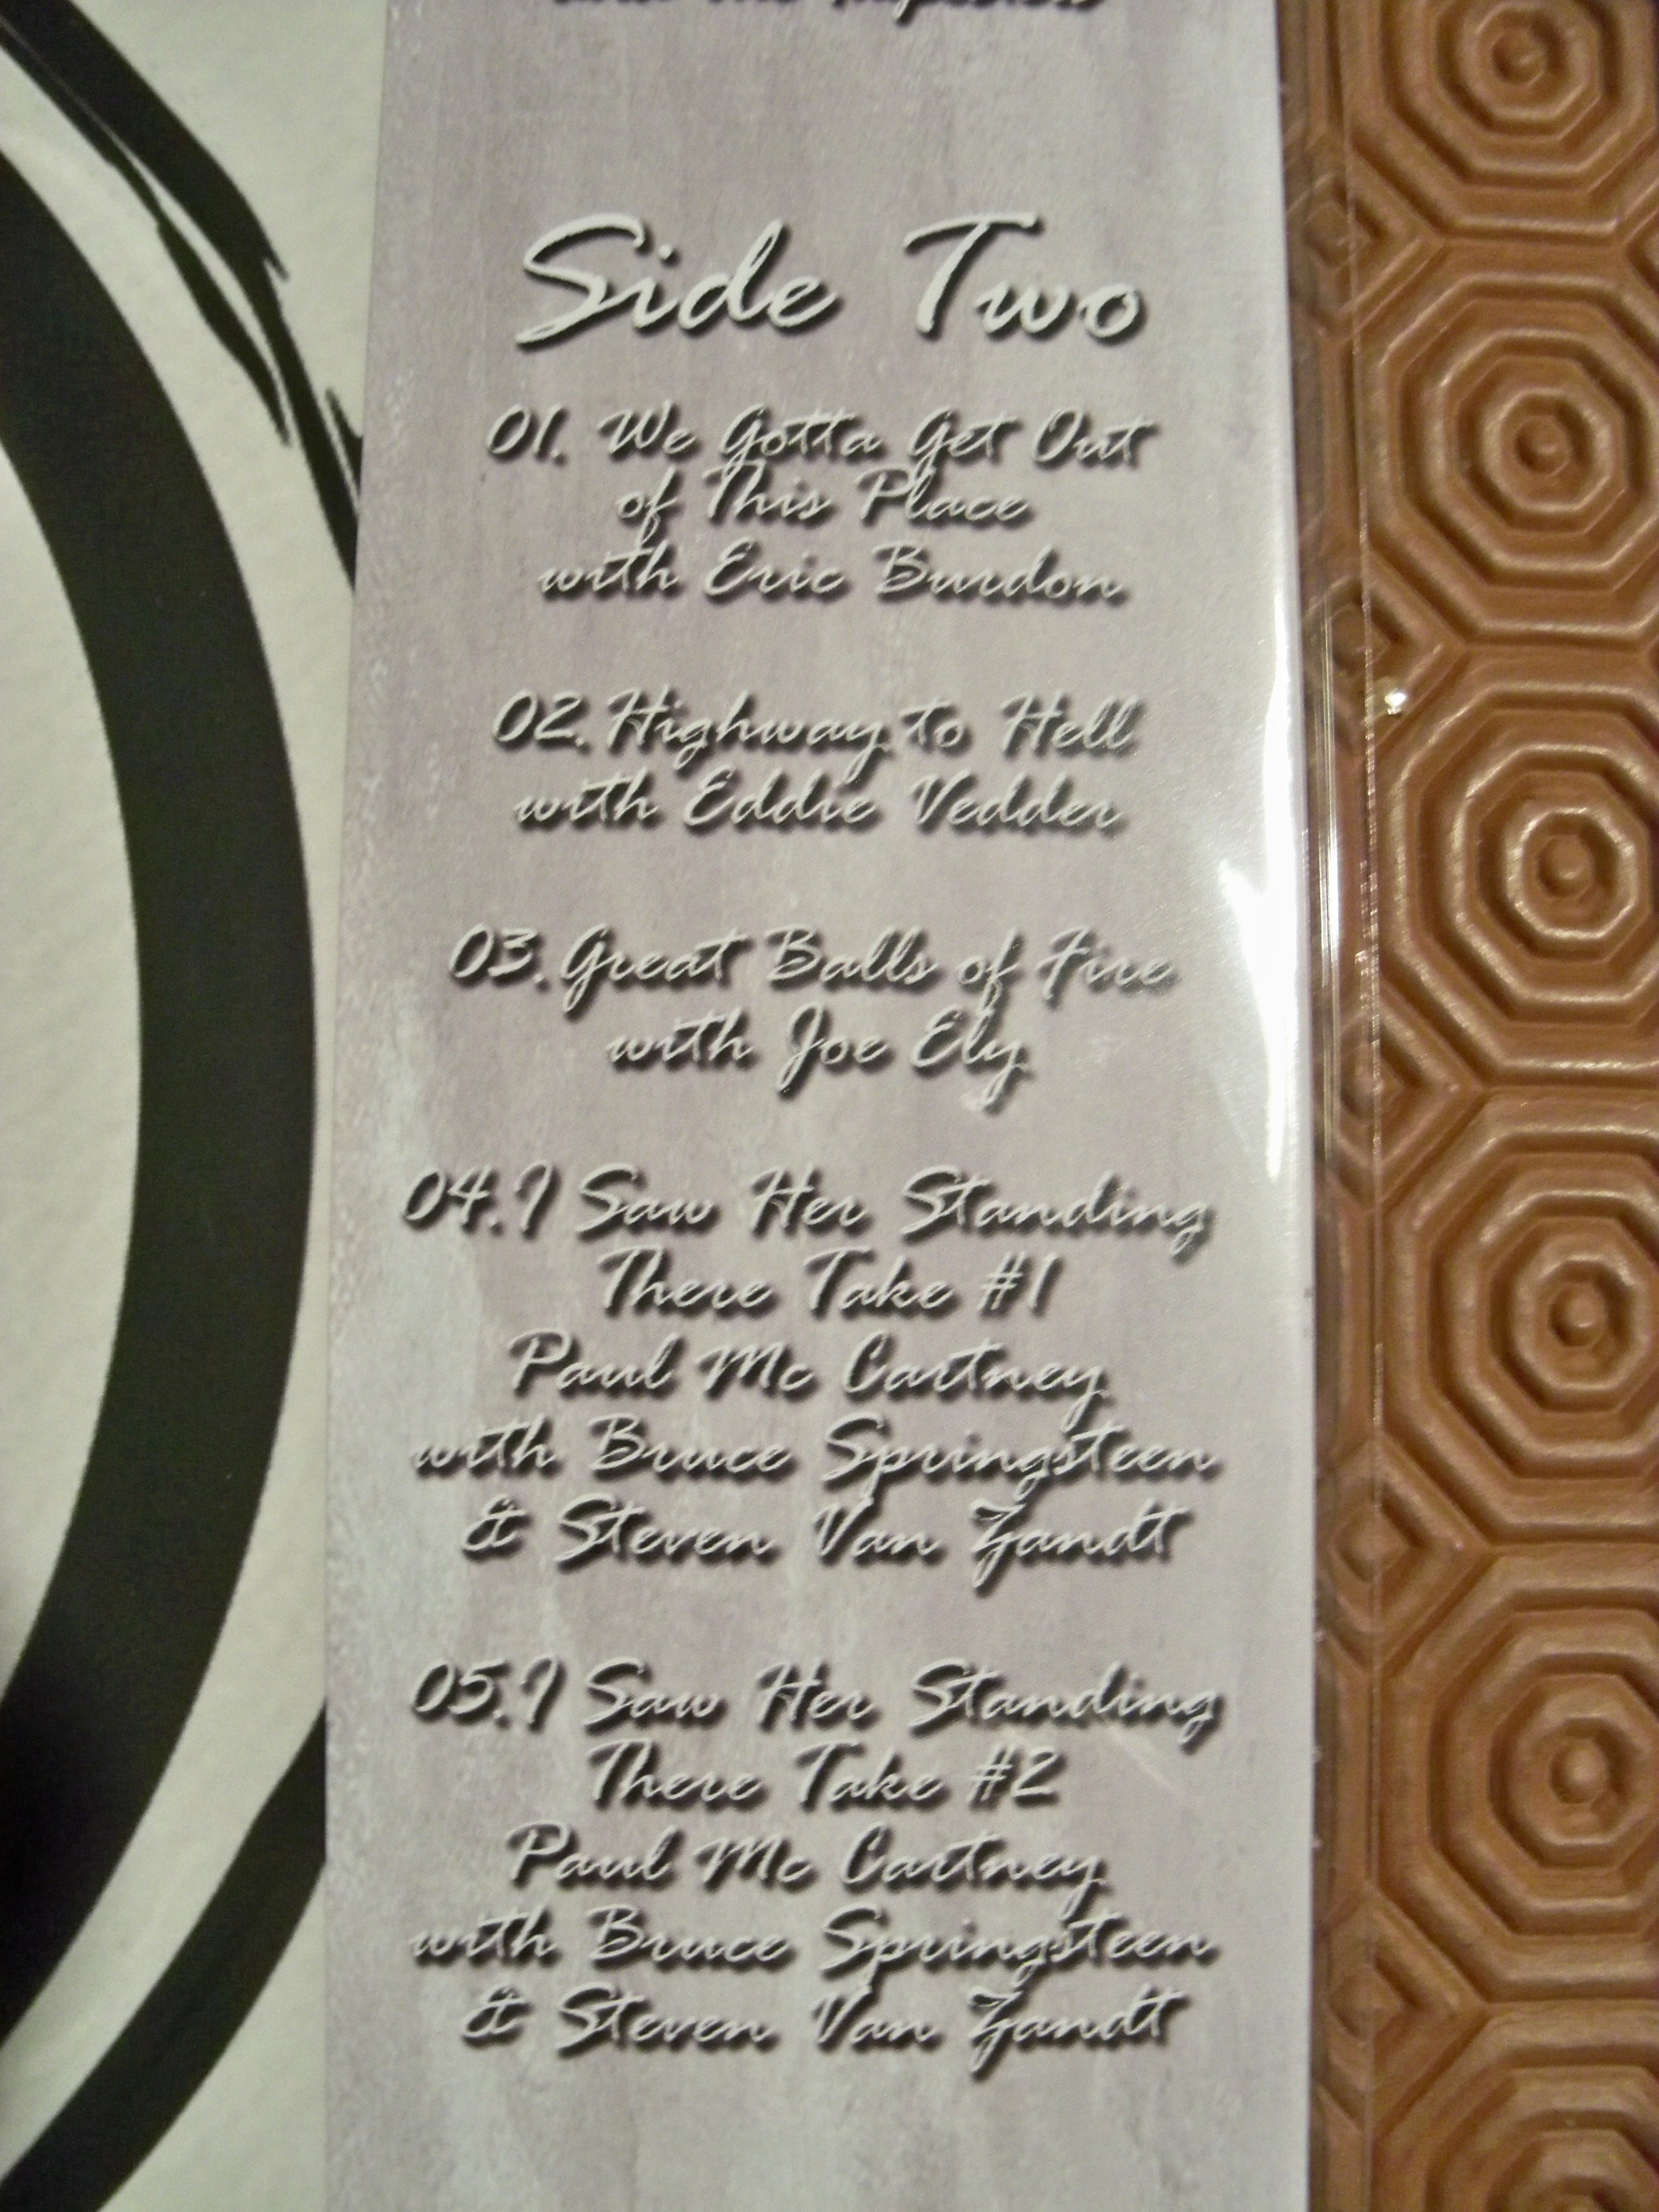 Side Two
01. We Gotta Get Out
of This Place
with Eric Burdon
02. Highway to Hell
with Eddie Vedder
03. Great Balls of Fire
with Joe Ely
04. I Saw Her Standing
There Take #1
Paul Mc Cartney
with Bruce Springsteen
& Steven Van Zandt
05. I Saw Her Standing
There Take #2
Paul Mc Cartney
with Bruce Springsteen
& Steven Van Zandt